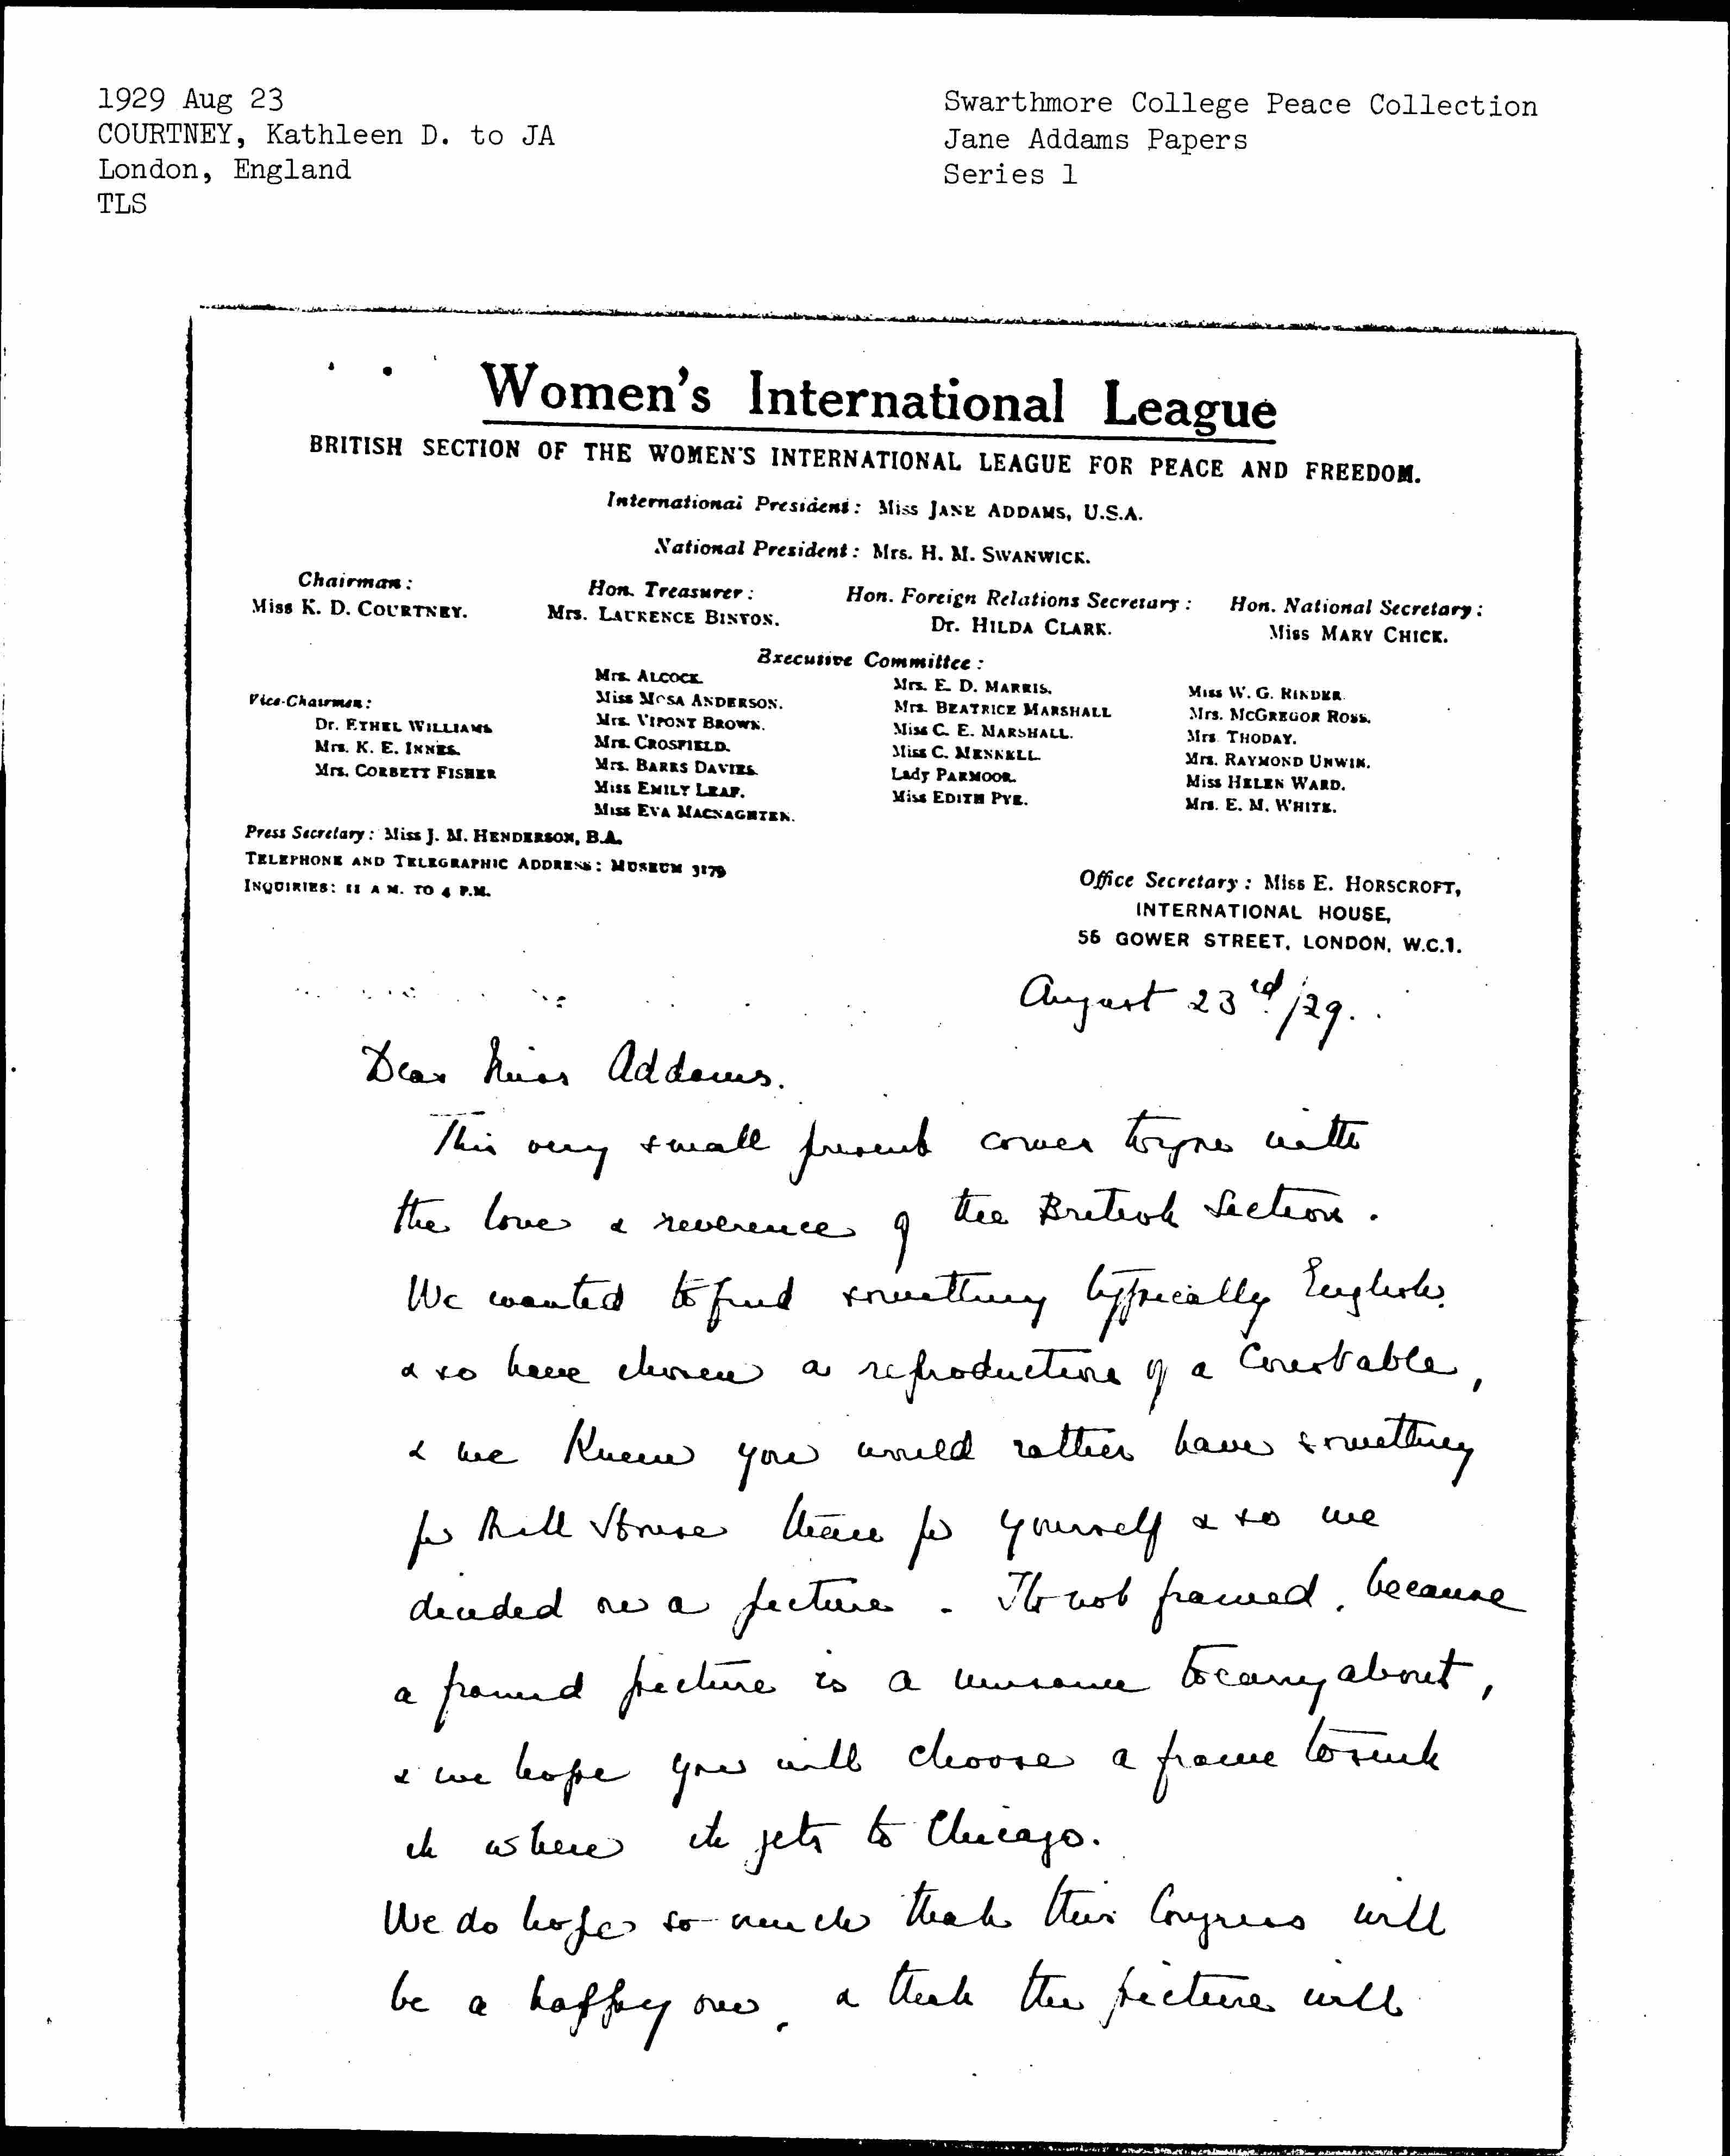 1929 Aug 23
COURTNEY, Kathleen D. to JA
London, England
TLS
Swarthmore College Peace Collection
Jane Addams Papers
Series 1
Women's International League
BRITISH SECTION OF THE WOMEN'S INTERNATIONAL LEAGUE FOR PEACE AND FREEDOM.
International President: Miss JANE ADDAMS, U.S.A.
National President: Mrs. H. M. SWANWICK.
Chairman:
Miss K. D. COURTNEY.
Hon. Treasurer:
Mrs. LAURENCE BINYON.
Hon. Foreign Relations Secretary:
Dr. HILDA CLARK.
Hon. National Secretary:
Miss MARY CHICK.
Vice-Chairmen:
Dr. ETHEL WILLIAMS
Mrs. K. E. INNES.
Mrs. CORBETT FISHER
Executive Committee:
Mrs. ALCOCK.
Miss MOSA ANDERSON.
Mrs. VIPONT BROWN.
Mrs. CROSFIELD.
Mrs. BARRS DAVIES.
Miss EMILY LEAF.
Miss EVA MACNAGHTEN.
Mrs. E. D. MARRIS.
Mrs. BEATRICE MARSHALL
Miss C. E. MARSHALL.
Miss C. MENNELL.
Lady PARMOOR.
Miss EDITH PYE.
Miss W. G. RINDER.
Mrs. MCGREGOR ROSS.
Mrs THODAY.
Mrs. RAYMOND UNWIN.
Miss HELEN WARD.
Mrs. E. M. WHITE.
Press Secretary: Miss J. M. HENDERSON, B.A.
TELEPHONE AND TELEGRAPHIC ADDRESS: MUSEUM 3179
INQUIRIES: 11 A M. TO 4 P.M.
Office Secretary: Miss E. HORSCROFT,
INTERNATIONAL HOUSE,
55 GOWER STREET, LONDON, W.C.1.
August 23rd/29.
Dear Miss Addams.
This very small present comes to you with
the love & reverence of the British Section.
We wanted to find something typically English
& so have chosen a reproduction of a Constable,
& we knew you would rather have something
for Hull House than for yourself & so we
decided on a picture. It's not framed, because
a framed picture is a nuisance to carry about,
& we hope you will choose a frame to suit
it when it gets to Chicago.
We do hope so much that this Congress will
be a happy one, & that the picture will